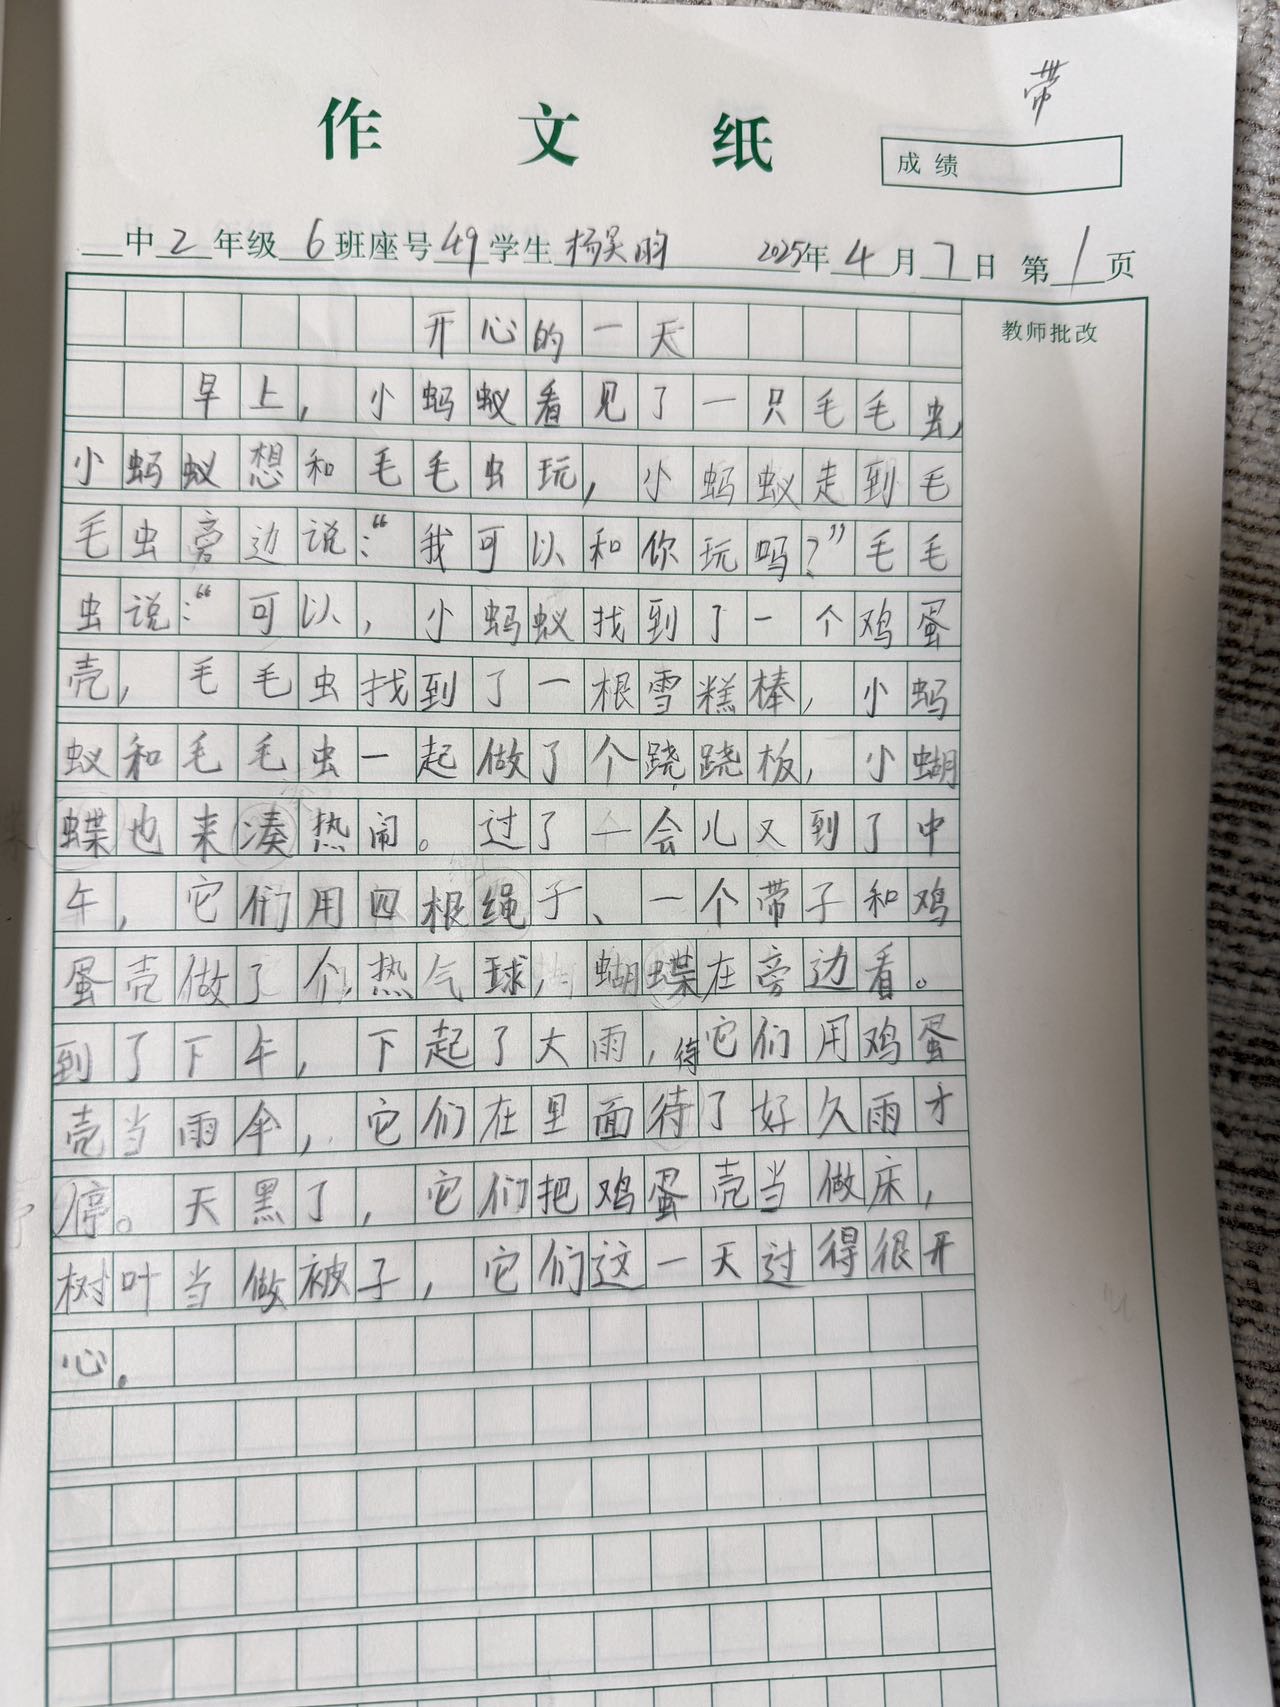 带
作文纸
成绩
中2年级6班座号49学生杨昊昀 2025年4月7日 第1页
教师批改
开心的一天
早上，小蚂蚁看见了一只毛毛虫，
小蚂蚁想和毛毛虫玩，小蚂蚁走到毛
毛虫旁边说：“我可以和你玩吗？”毛毛
虫说：“可以，小蚂蚁找到了一个鸡蛋
壳，毛毛虫找到了一根雪糕棒，小蚂
蚁和毛毛虫一起做了个跷跷板，小蝴
蝶也来凑热闹。过了一会儿又到了中
午，它们用四根绳子、一个带子和鸡
蛋壳做了个热气球，蝴蝶在旁边看。
到了下午，下起了大雨，待它们用鸡蛋
壳当雨伞，它们在里面待了好久雨才
停。天黑了，它们把鸡蛋壳当做床，
树叶当做被子，它们这一天过得很开
心。